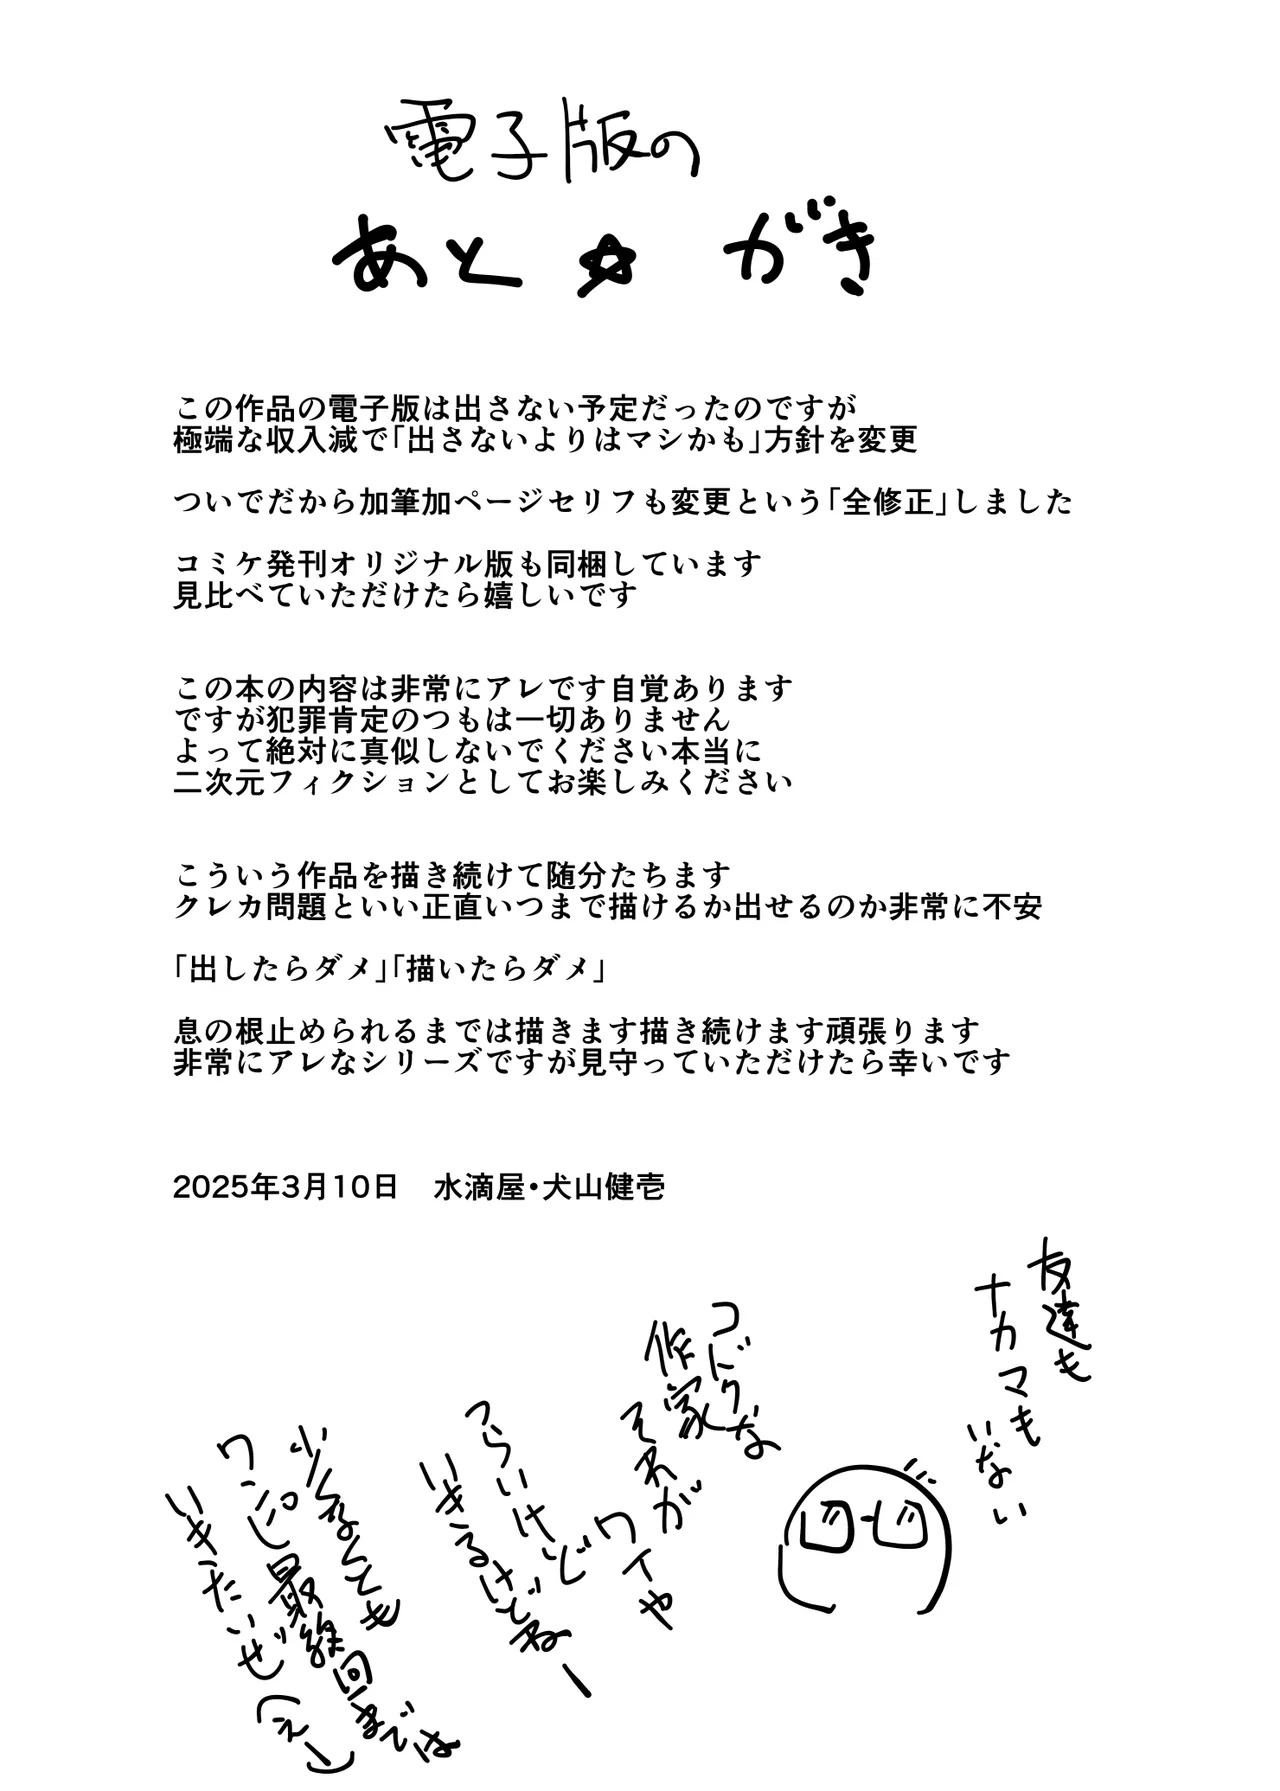 電子版の
あと☆がき
この作品の電子版は出さない予定だったのですが
極端な収入減で「出さないよりはマシかも」方針を変更
ついでだから加筆加ページセリフも変更という「全修正」しました
コミケ発刊オリジナル版も同梱しています
見比べていただけたら嬉しいです
この本の内容は非常にアレです自覚あります
ですが犯罪肯定のつもは一切ありません
よって絶対に真似しないでください本当に
二次元フィクションとしてお楽しみください
こういう作品を描き続けて随分たちます
クレカ問題といい正直いつまで描けるか出せるのか非常に不安
「出したらダメ」「描いたらダメ」
息の根止められるまでは描きます描き続けます頑張ります
非常にアレなシリーズですが見守っていただけたら幸いです
2025年3月10日　水滴屋・犬山健壱
友達も
ナカマも
いない
コドクな
作家
それが
ワイや
つらいけど
いきるけどねー
少なくとも
ワンピ最終回までは
いきたいぜ(え)